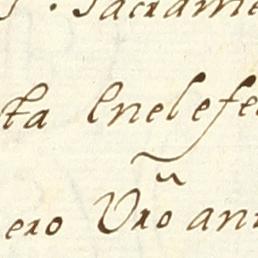 Sacrame
ta Enelefe
ero Vrõ ann